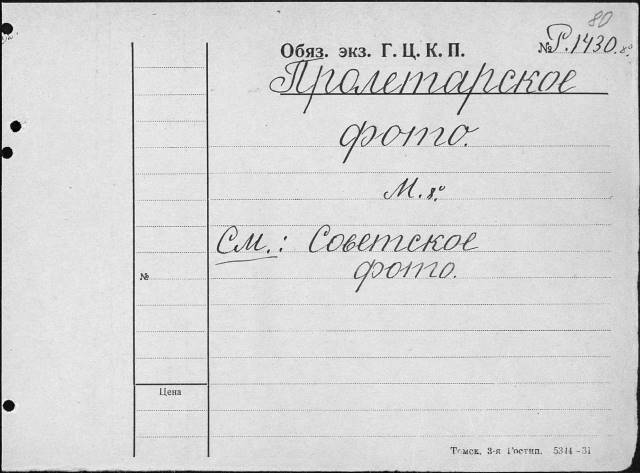 80
Обяз. экз. Г. Ц. К. П.
№ Р.1430.8º
Пролетарское
фото.
М. 8º.
См.: Советское
фото.
№
Цена
Томск, 3-я Гостип. 5344-31